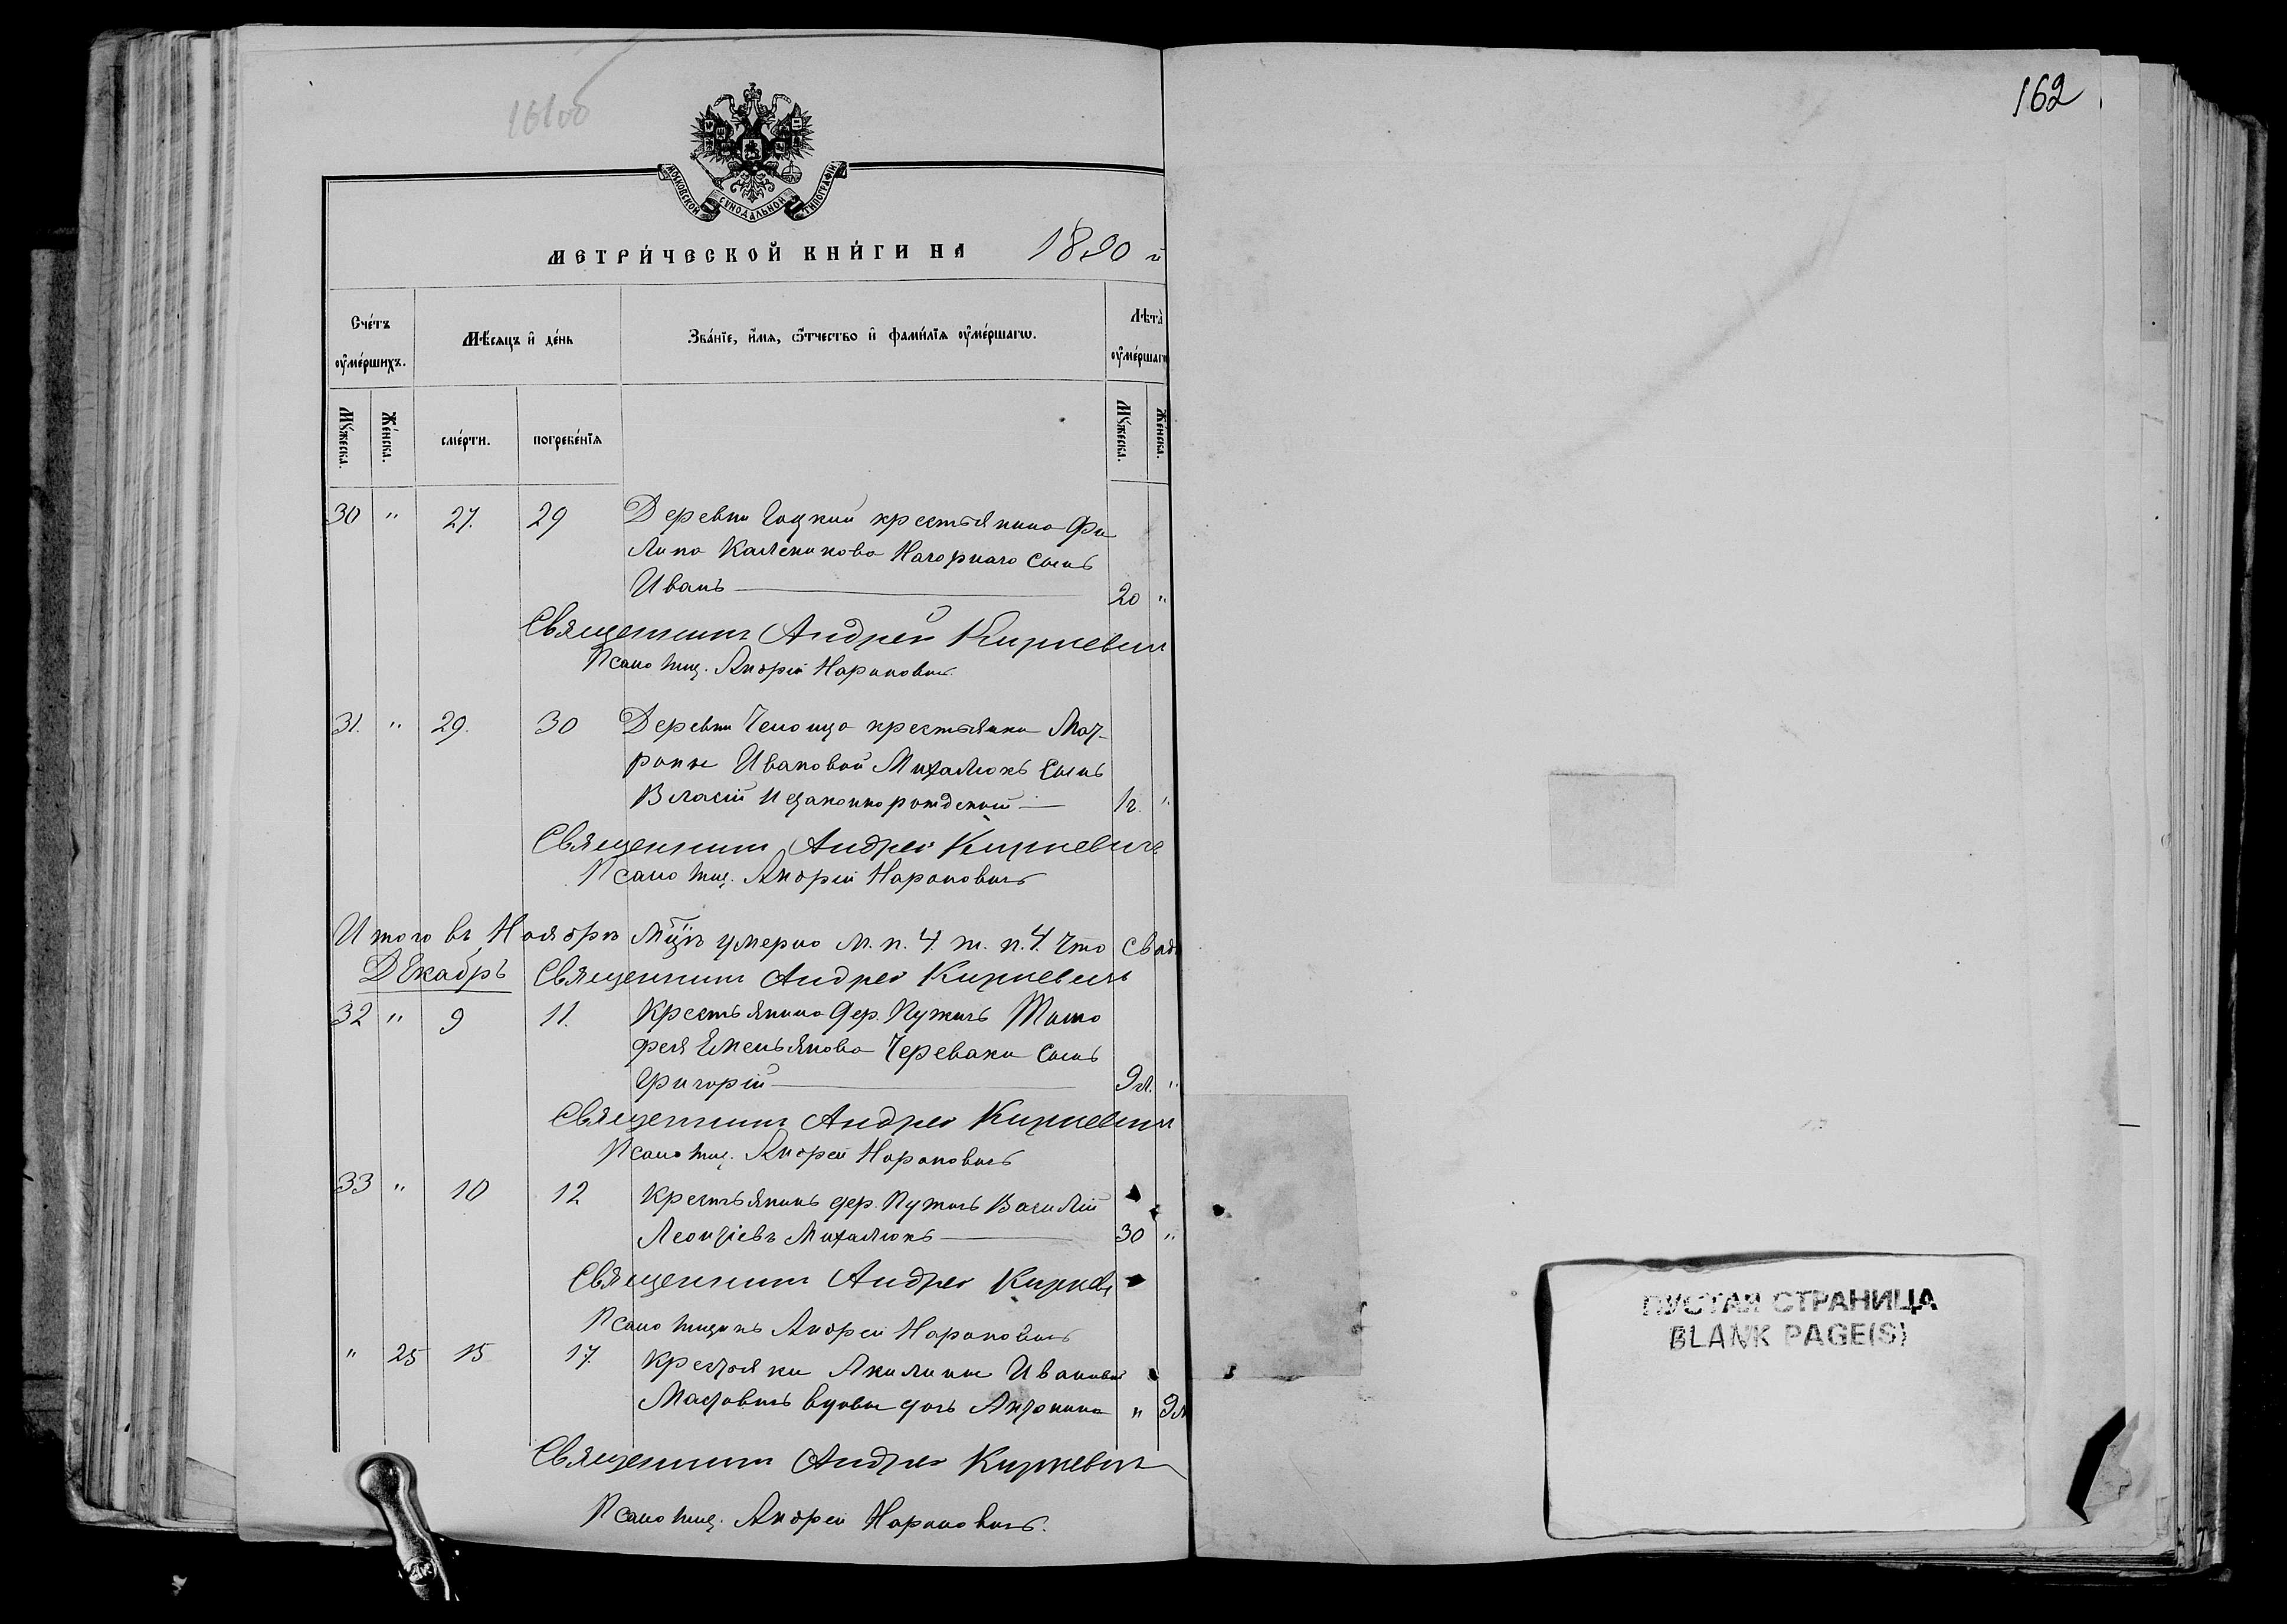 162
МОСКОВСКОЙ СУНОДАЛЬНОЙ ТИПОГРАФІИ
МЕТРИ́ЧЕСКОЙ КНИ́ГИ НА 1890 й
Сче́тъ оу҆ме́ршихъ.
Мѣ́сяцъ и҆ де́нь
Зва́нїе, и҆́мя, ѻ҆́тчество и҆ фами́лїя оу҆ме́ршагѡ.
Лѣ́та оу҆ме́ршагѡ
Мꙋ́жеска.
Же́нска.
сме́рти.
погребе́нїя
Мꙋ́жеска.
Же́нска.
30 " 27. 29 Деревни крестьянина Фи
липа Каленикова Нагорнаго сынъ
Иванъ 20 "
Священникъ Андрей Киркевич
Псаломщ. Андрей Нарановичъ
31. " 29. 30 Деревни крестьянки Мат-
роны Ивановой Михалюкъ сынъ
Власій незаконнорожденный 1г. "
Священникъ Андрей Киркевичъ
Псаломщ. Андрей Нарановичъ
Итого въ Ноябрѣ мцѣ умерло м. п. 4. ж. п. 4. что
Декабрь Священникъ Андрей Киркевичъ
32 " 9 11. Крестьянина дер. Пужичъ Тимо
фея Емельянова Черевака сынъ
Григорій 9л. "
Священникъ Андрей Киркевич
Псаломщ. Андрей Нарановичъ
33 " 10 12 Крестьянинъ дер. Пужичъ Василій
Леонтіевъ Михалюкъ 30 "
Священникъ Андрей Киркев
Псаломщикъ Андрей Нарановичъ
" 25 15 17. Крестьянки Акилины Ивановой
вдовы дочь Антонина " 9л
Священникъ Андрей Киркевичъ
Псаломщ. Андрей Нарановичъ.
ПУСТАЯ СТРАНИЦА
BLANK PAGE(S)